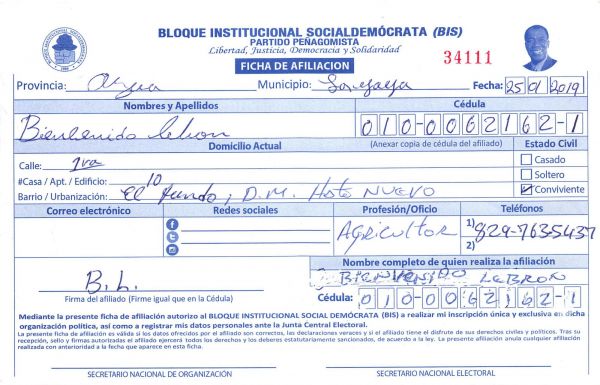 BLOQUE INSTITUCIONAL SOCIALDEMÓCRATA (BIS)
PARTIDO PEÑAGOMISTA
Libertad, Justicia, Democracia y Solidaridad
FICHA DE AFILIACION
34111
Provincia: Azua Municipio: Fecha: 25 01 2019
Nombres y Apellidos Cédula
Bienvenido Lebron 010-0062162-1
Domicilio Actual (Anexar copia de cédula del afiliado) Estado Civil
Calle: 1ra Casado
#Casa / Apt. / Edificio: 10 Soltero
Barrio / Urbanización: El Fundo, D.M. Hato NUEVO Conviviente
Correo electrónico Redes sociales Profesión/Oficio Teléfonos
AgRicultor 1) 829-763-5437
2)
Nombre completo de quien realiza la afiliación
B.L. BIENVENIDO LEBRON
Firma del afiliado (Firme igual que en la Cédula) Cédula: 010-0062162-1
Mediante la presente ficha de afiliación autorizo al BLOQUE INSTITUCIONAL SOCIAL DEMÓCRATA (BIS) a realizar mi inscripción única y exclusiva en dicha
organización política, así como a registrar mis datos personales ante la Junta Central Electoral.
La presente ficha de afiliación es válida si los datos ofrecidos por el afiliado son correctos, las declaraciones veraces y si el titular tiene el disfrute de sus derechos civiles y políticos. Tras su
recepción, sello y firmas autorizadas el afiliado ejercerá todos los derechos y los deberes estatutariamente sancionados, de acuerdo a la ley. La presente afiliación anula cualquier afiliación
realizada con anterioridad a la fecha que aparece en esta ficha.
SECRETARIO NACIONAL DE ORGANIZACIÓN SECRETARIO NACIONAL ELECTORAL